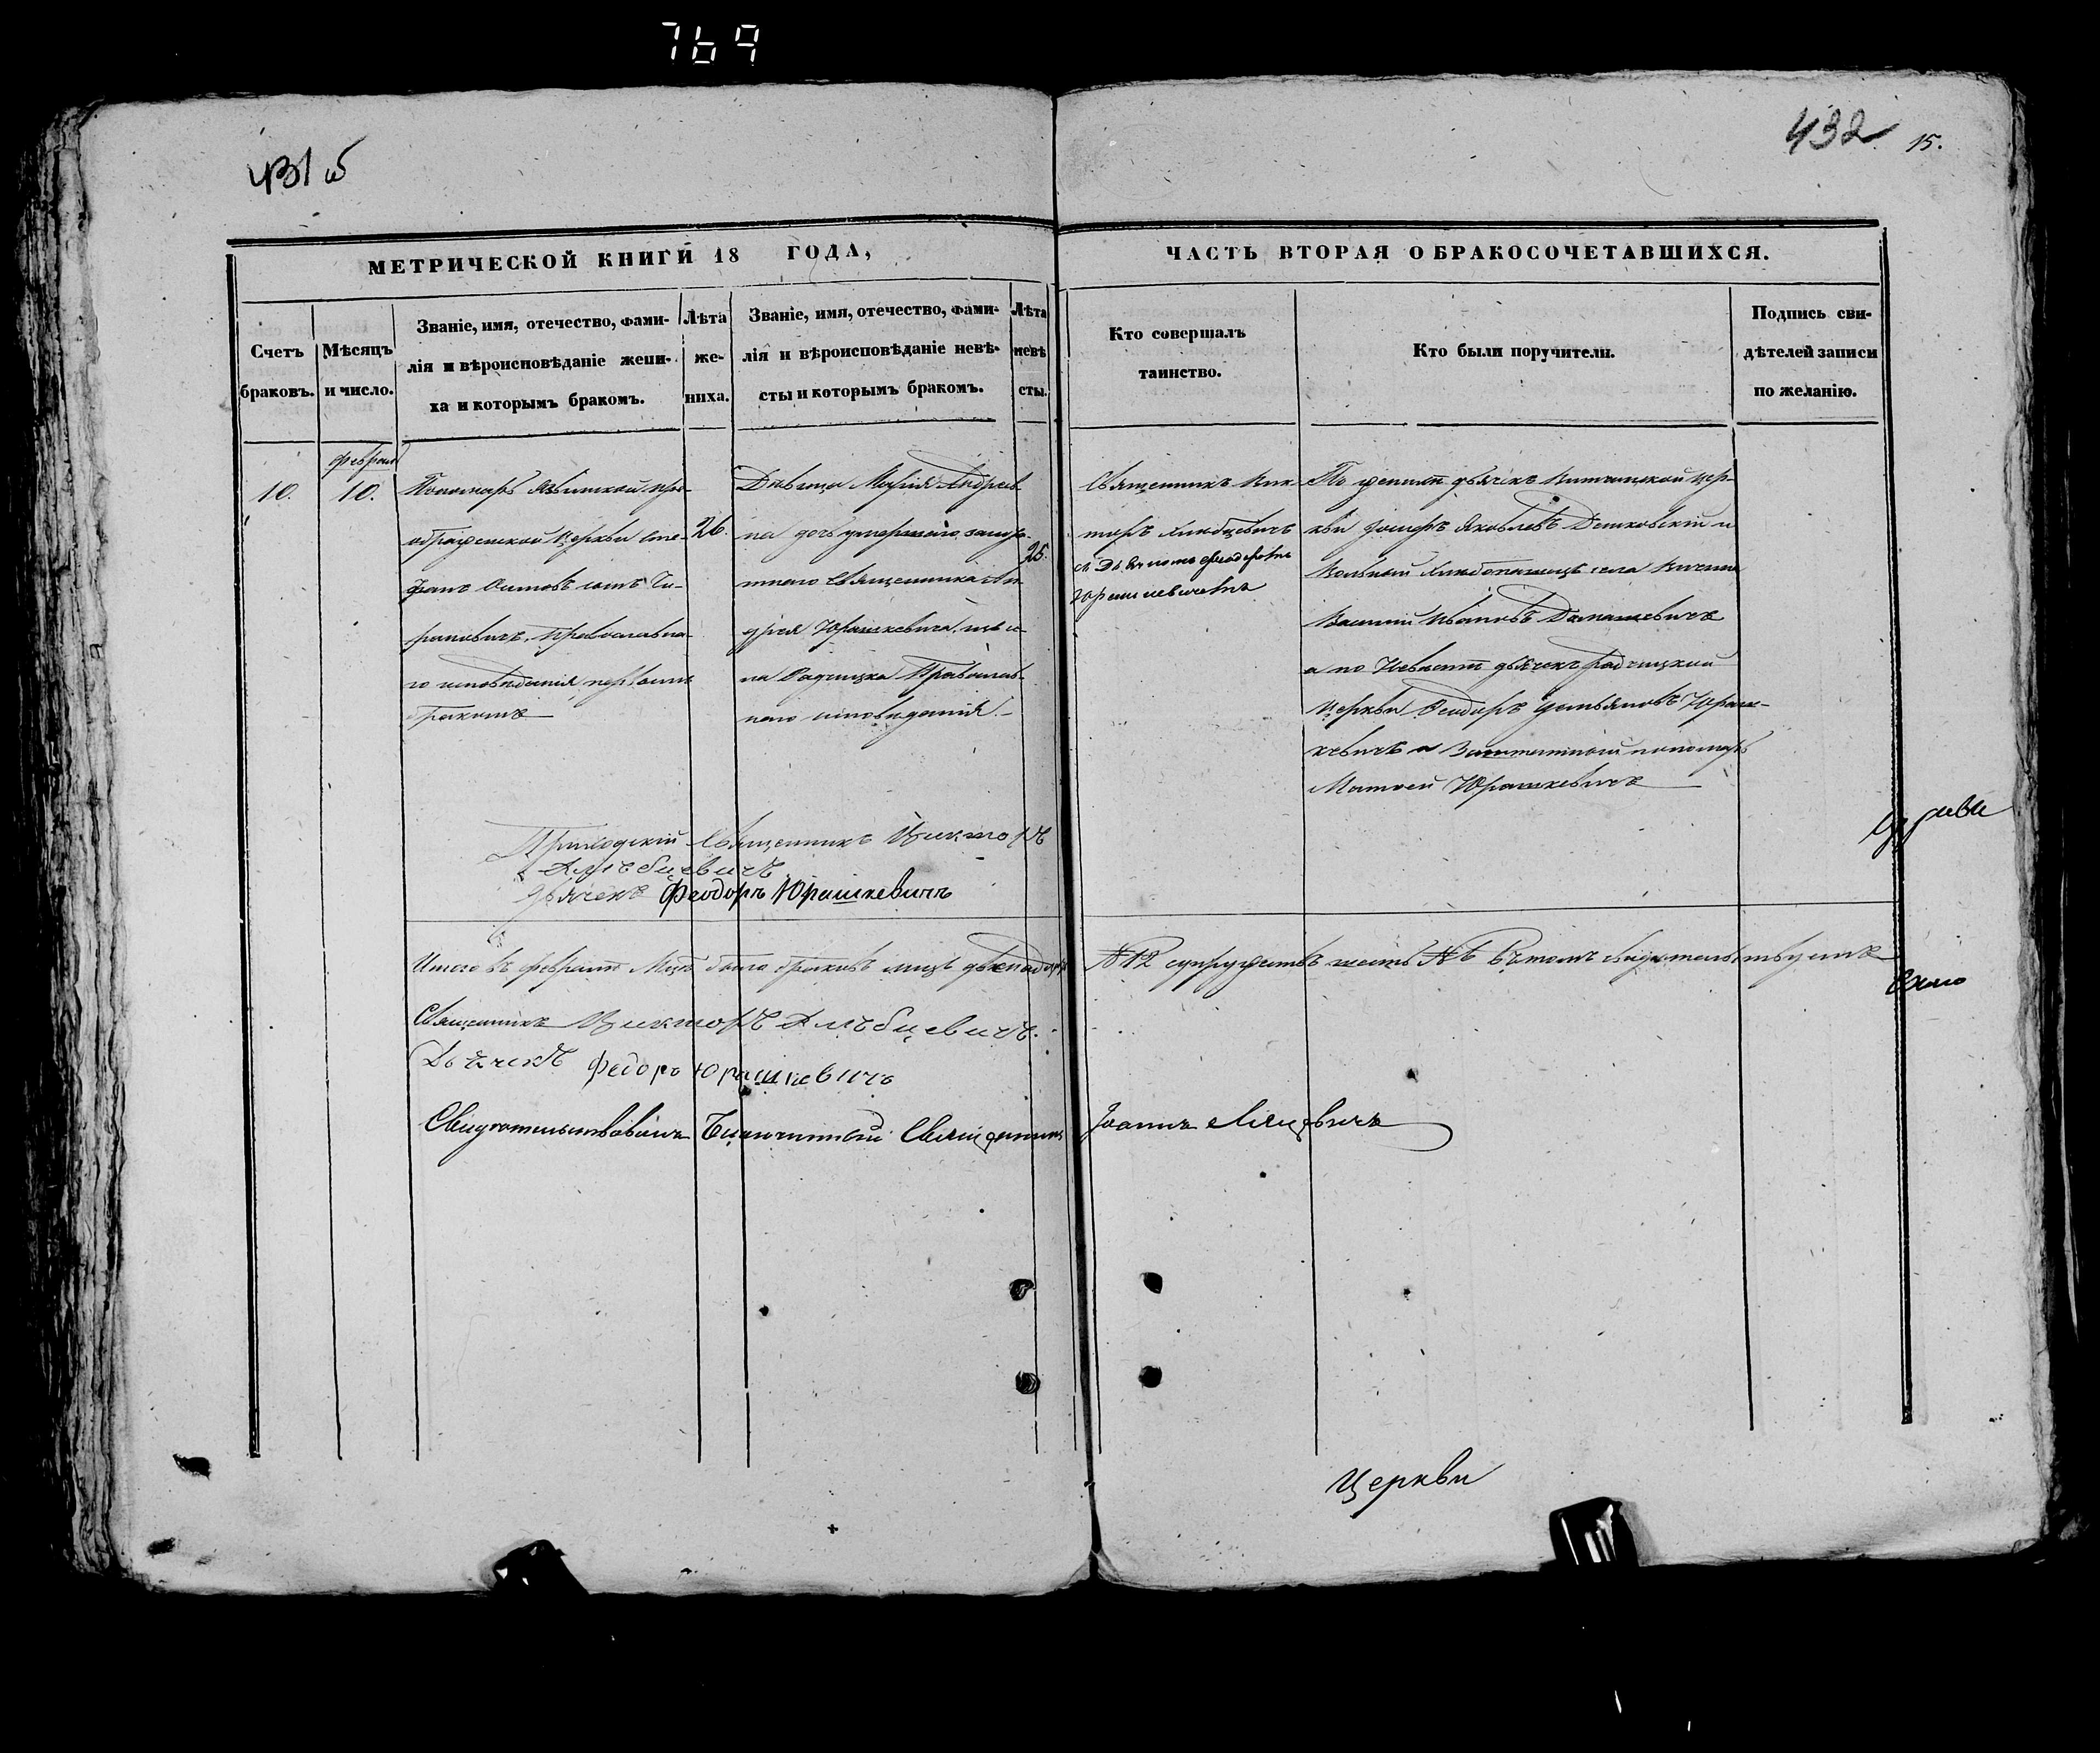 769
431 об
432
15.
МЕТРИЧЕСКОЙ КНИГИ 18 ГОДА,
ЧАСТЬ ВТОРАЯ О БРАКОСОЧЕТАВШИХСЯ.
Счетъ
браковъ.
Мѣсяцъ
и число.
Званіе, имя, отечество, фами-
лія и вѣроисповѣданіе жени-
ха и которымъ бракомъ.
Лѣта
же-
ниха.
Званіе, имя, отечество, фами-
лія и вѣроисповѣданіе невѣ-
сты и которымъ бракомъ.
Лѣта
невѣ
сты.
Кто совершалъ
таинство.
Кто были поручители.
Подпись сви-
дѣтелей записи
по желанію.
10.
феврал
10.
Пономарь Прео-
ображенской Церкви Сте-
фанъ Осиповъ сынъ
Православна-
го исповѣданія первымъ
бракомъ
26.
Дѣвица Марія Андреев-
на дочь умершаго зашта-
тнаго Священника Ан-
дрея Юрашкевича
Православ-
наго исповѣданія
25.
Священникъ Вик-
торъ Хлѣбцевичъ
съ Дьячкомъ Феодоромъ
Юрашкевичемъ
По женихѣ дьячекъ цер-
кви Яковлевъ и
Вольный Хлѣбопашецъ села
Василій Ивановъ Домашевичъ
а по Невѣстѣ дьячекъ Радчицкой
Церкви Феодоръ Демьяновъ Юраш-
кевичъ и Заштатный пономарь
Матвей Юрашкевичъ
Приходскій Священникъ Викторъ
Хлѣбцевичъ
Дьячекъ Феодоръ Юрашкевичъ
Итого въ февралѣ Мцѣ было браковъ лицъ двенадцать
№ 12 супружествъ шесть № 6 Въ томъ свидѣтельствуемъ
Священникъ Викторъ Хлѣбцевичъ.
Дьячекъ Федоръ Юрашкевичъ
Свидѣтельствовалъ Благочинный Священникъ Іоаннъ Лисцевичъ
Церкви